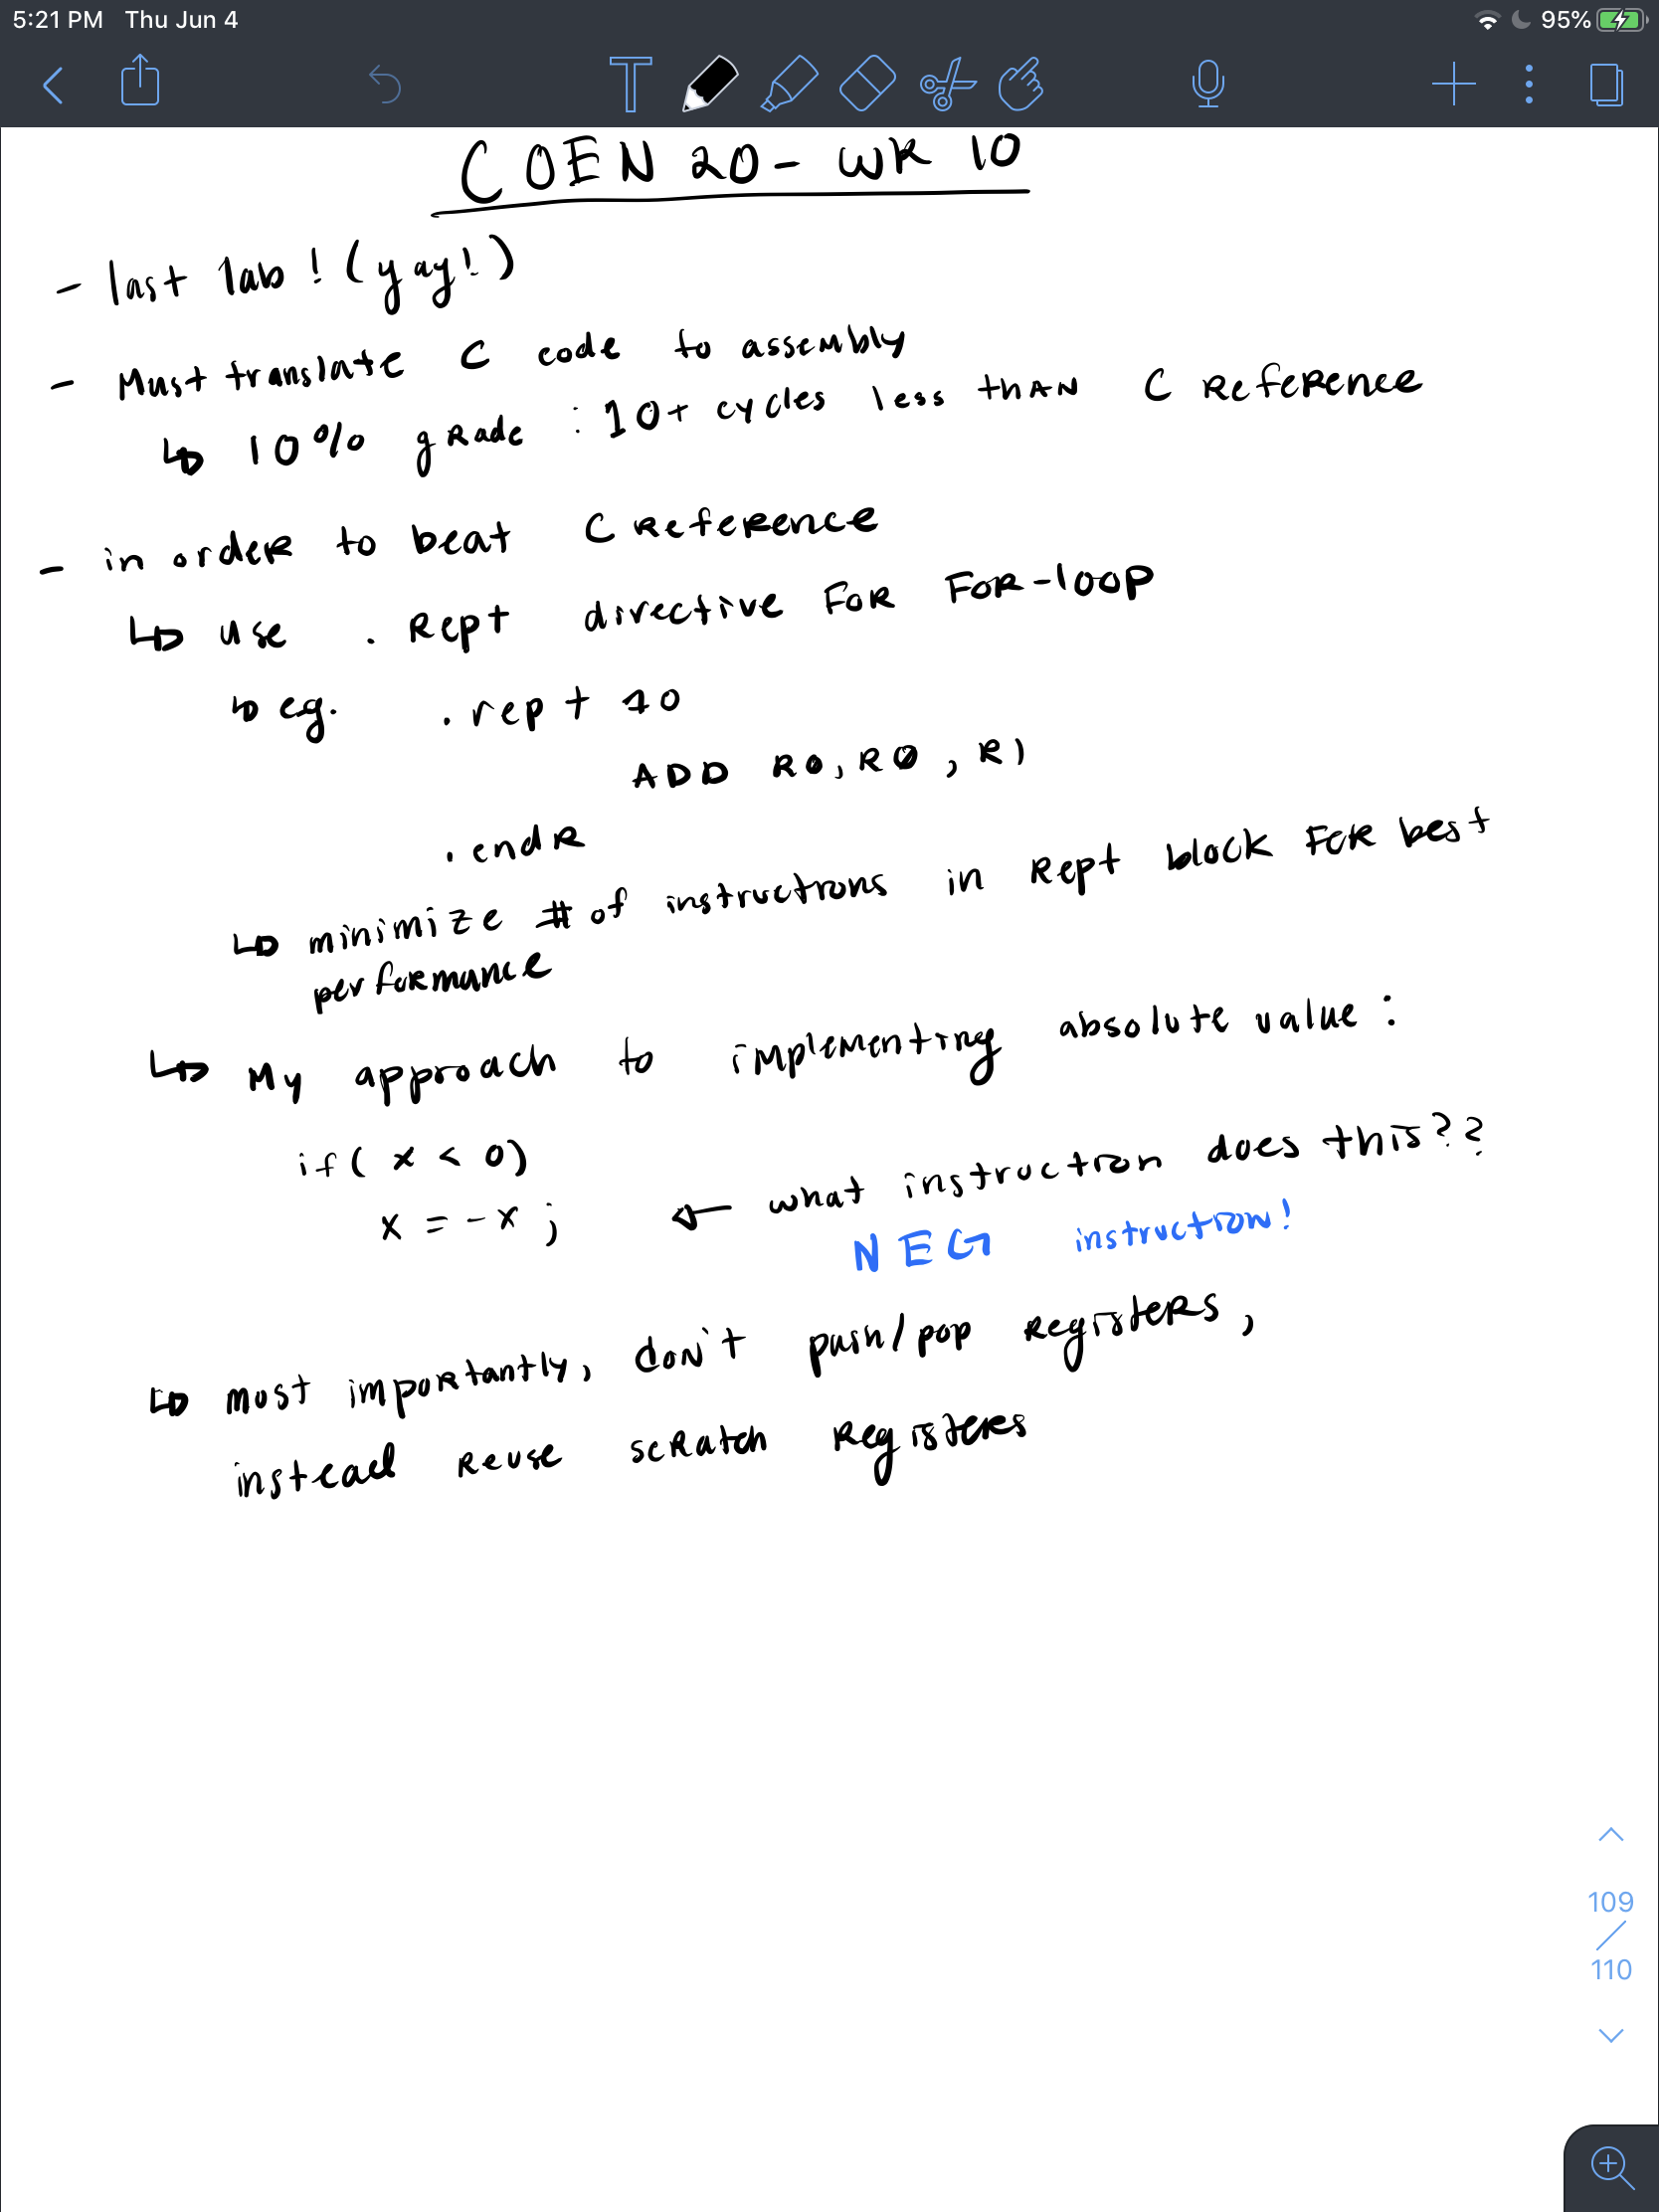 5:21 PM Thu Jun 4 95%
COEN 20 - WK 10
- last lab! (yay!)
- Must translate C code to assembly
↳ 10% grade : 10+ cycles less than C Reference
- in order to beat C Reference
↳ use .Rept directive for for-loop
↳ eg. .rept 10
ADD R0, R0, R1
.endR
↳ minimize # of instructions in Rept block for best
performance
↳ My approach to implementing absolute value:
if( x < 0)
x = -x ; ← what instruction does this??
NEG instruction!
↳ most importantly, don't push/pop registers,
instead reuse scratch registers
109
/
110